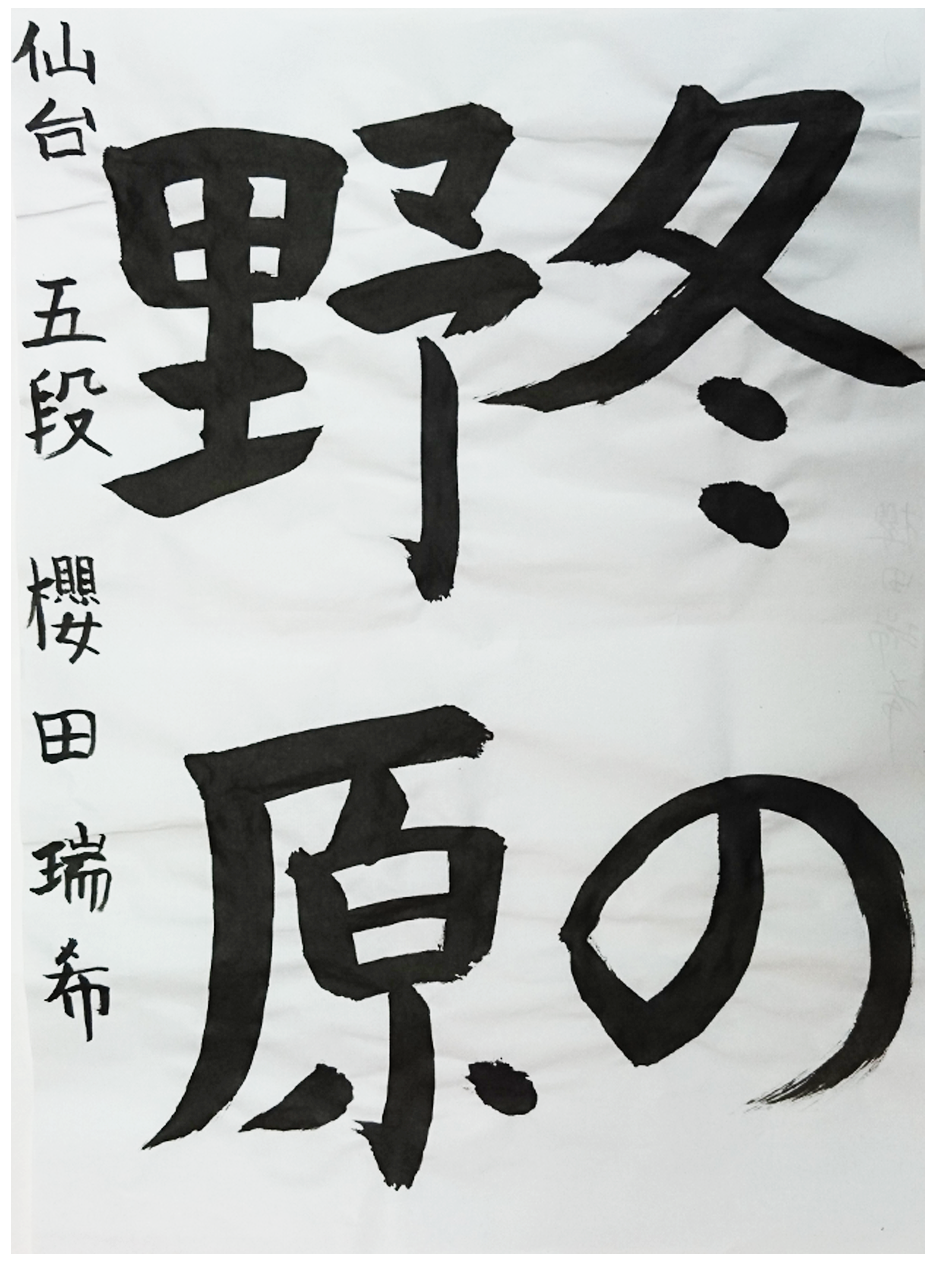 冬の
野原
仙台 五段 櫻田瑞希